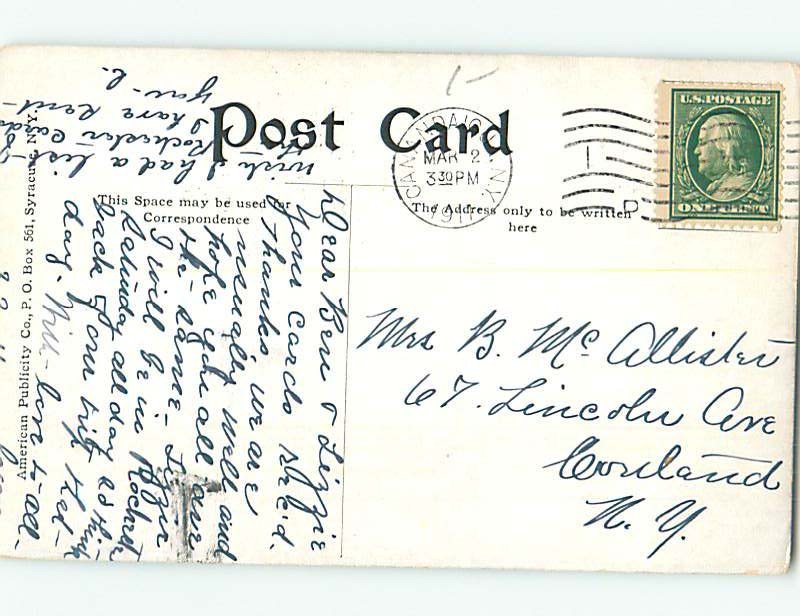 Post Card
CANANDAIGUA N.Y.
MAR 2
3 30 PM
1911
U.S. POSTAGE
ONE CENT
This Space may be used for
Correspondence
The Address only to be written
here
American Publicity Co., P. O. Box 561, Syracuse, N.Y.
Mrs B. Mc Allister
67. Lincoln Ave
Cortland
N. Y.
Dear Ben & Lizzie
Your Cards Rec'd.
Thanks we are
usually well and
hope you all are
the same - Lizzie
I will be in Rochester
Saturday all day as think
back from trip Wed-
day. With love to all-
wish I had a list
of Rochester Cards
I have sent
you - L.